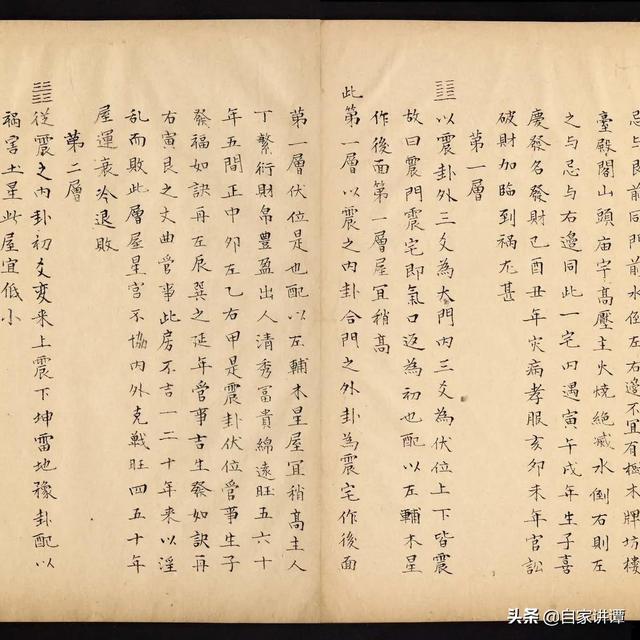 忌与即前同門前水倒左右邊不宜有樹木牌坊樓
臺殿閣山頭庙宇高壓主火燒絶滅水倒右則左
之与忌与右邉同此一宅内遇寅午戌年生子喜
慶發名發財已酉丑年灾病孝服亥卯未年官訟
破財加臨到祸尤甚
第一層
以震卦外三爻為大門内三爻為伏位上下皆震
故曰震門震宅即氣口返為初也配以左輔木星
作後面第一層屋宜稍高
此第一層以震之内卦合門之外卦為震宅作後面
第一層伏位是也配以左輔木星屋宜稍高主人
丁繁衍財帛豊盈出人清秀冨貴綿遠旺五六十
年五間正中卯左乙右甲是震卦伏位管事生子
發福如訣再左辰巽之延年管事吉生發如訣再
右寅艮之文曲管事此房不吉一二十年来以淫
乱而敗此層屋星宫不協内外克戰旺四五十年
屋運衰冷退敗
第二層
從震之内卦初爻变来上震下坤雷地豫卦配以
禍害土星此屋宜低小
头条 @自家讲谭